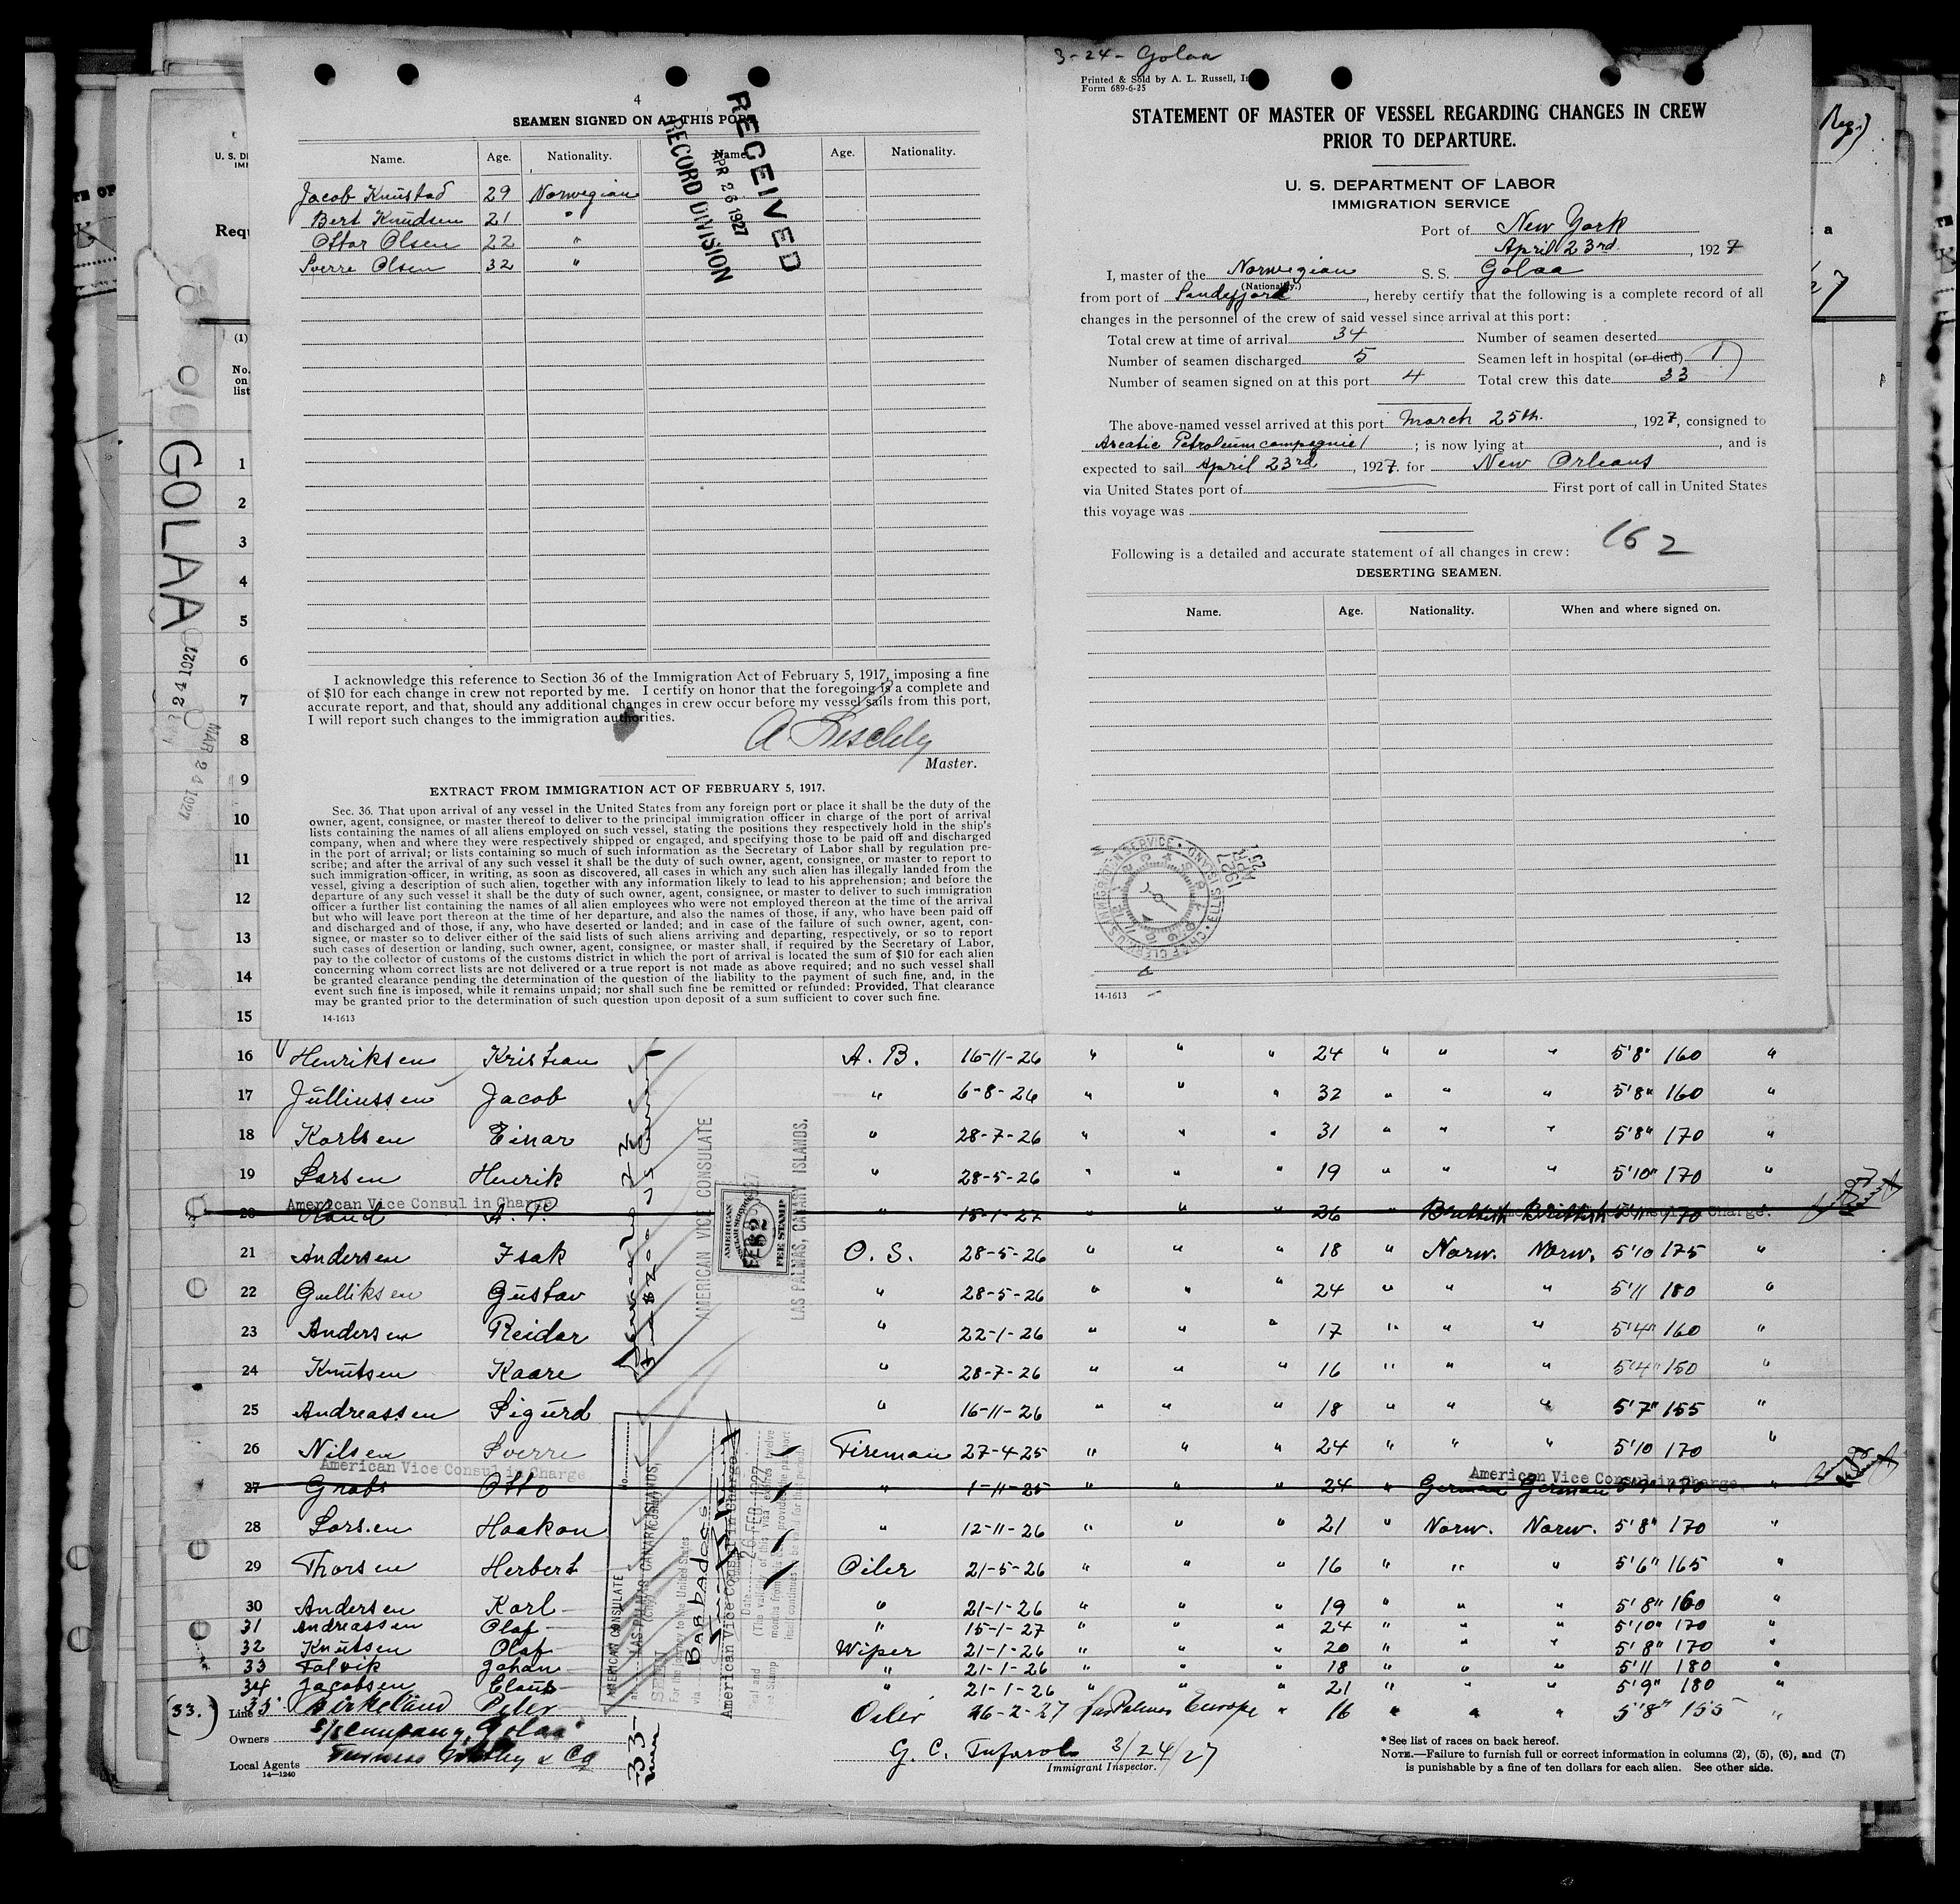 4
SEAMEN SIGNED ON AT THIS PORT
Name. Age. Nationality. Name. Age. Nationality.
Jacob Knustad 29 Norwegian
Bert Knudsen 21 "
Ottar Olsen 22 "
Sverre Olsen 32 "
RECEIVED
APR 26 1927
RECORD DIVISION
I acknowledge this reference to Section 36 of the Immigration Act of February 5, 1917, imposing a fine
of $10 for each change in crew not reported by me. I certify on honor that the foregoing is a complete and
accurate report, and that, should any additional changes in crew occur before my vessel sails from this port,
I will report such changes to the immigration authorities.
Master.
EXTRACT FROM IMMIGRATION ACT OF FEBRUARY 5, 1917.
Sec. 36. That upon arrival of any vessel in the United States from any foreign port or place it shall be the duty of the
owner, agent, consignee, or master thereof to deliver to the principal immigration officer in charge of the port of arrival
lists containing the names of all aliens employed on such vessel, stating the positions they respectively hold in the ship's
company, when and where they were respectively shipped or engaged, and specifying those to be paid off and discharged
in the port of arrival; or lists containing so much of such information as the Secretary of Labor shall by regulation pre-
scribe; and after the arrival of any such vessel it shall be the duty of such owner, agent, consignee, or master to report to
such immigration officer, in writing, as soon as discovered, all cases in which any such alien has illegally landed from the
vessel, giving a description of such alien, together with any information likely to lead to his apprehension; and before the
departure of any such vessel it shall be the duty of such owner, agent, consignee, or master to deliver to such immigration
officer a further list containing the names of all alien employees who were not employed thereon at the time of the arrival
but who will leave port thereon at the time of her departure, and also the names of those, if any, who have been paid off
and discharged and of those, if any, who have deserted or landed; and in case of the failure of such owner, agent, con-
signee, or master so to deliver either of the said lists of such aliens arriving and departing, respectively, or so to report
such cases of desertion or landing, such owner, agent, consignee, or master shall, if required by the Secretary of Labor,
pay to the collector of customs of the customs district in which the port of arrival is located the sum of $10 for each alien
concerning whom correct lists are not delivered or a true report is not made as above required; and no such vessel shall
be granted clearance pending the determination of the question of the liability to the payment of such fine, and, in the
event such fine is imposed, while it remains unpaid; nor shall such fine be remitted or refunded: Provided, That clearance
may be granted prior to the determination of such question upon deposit of a sum sufficient to cover such fine.
14-1613
3-24- Golaa
Printed & Sold by A. L. Russell, In
Form 689-6-25
STATEMENT OF MASTER OF VESSEL REGARDING CHANGES IN CREW
PRIOR TO DEPARTURE.
U. S. DEPARTMENT OF LABOR
IMMIGRATION SERVICE
Port of New York
April 23rd, 1927
I, master of the Norwegian S. S. Golaa
(Nationality.)
from port of Sandefjord, hereby certify that the following is a complete record of all
changes in the personnel of the crew of said vessel since arrival at this port:
Total crew at time of arrival 34 Number of seamen deserted
Number of seamen discharged 5 Seamen left in hospital (or died) 1
Number of seamen signed on at this port 4 Total crew this date 33
The above-named vessel arrived at this port March 25th, 1927, consigned to
Aseatic Petroleum compagnie; is now lying at , and is
expected to sail April 23rd, 1927 for New Orleans
via United States port of First port of call in United States
this voyage was
162
Following is a detailed and accurate statement of all changes in crew:
DESERTING SEAMEN.
Name. Age. Nationality. When and where signed on.
14-1613
GOLAA
MAR 24 1927
(1)
No.
on
list
1
2
3
4
5
6
7
8
9
10
11
12
13
14
15
16 Henriksen Kristian A. B. 16-11-26 " " " 24 " " " 5'8" 160 "
17 Julliussen Jacob " 6-8-26 " " " 32 " " " 5'8" 160 "
18 Karlsen Einar " 28-7-26 " " " 31 " " " 5'8" 170 "
19 Larsen Henrik " 28-5-26 " " " 19 " " " 5'10" 170 "
American Vice Consul in Charge
20 A. P. " 15-1-27 " " " 26 " Brittish Brittish 5'11" 170
21 Andersen Isak O. S. 28-5-26 " " " 18 " Norw. Norw. 5'10 175 "
22 Gulliksen Gustav " 28-5-26 " " " 24 " " " 5'11 180 "
23 Andersen Reidar " 22-1-26 " " " 17 " " " 5'4" 160 "
24 Knutsen Kaare " 28-7-26 " " " 16 " " " 5'4" 150 "
25 Andreassen Sigurd " 16-11-26 " " " 18 " " " 5'7" 155 "
26 Nilsen Sverre Fireman 27-4-25 " " " 24 " " " 5'10 170 "
American Vice Consul in Charge American Vice Consul in Charge.
27 Otto " 1-11-25 " " " 24 " German German 5'9" 170 "
28 Larsen Haakon " 12-11-26 " " " 21 " Norw. Norw. 5'8" 170 "
29 Thorsen Herbert Oiler 21-5-26 " " " 16 " " " 5'6" 165 "
30 Andersen Karl " 21-1-26 " " " 19 " " " 5'8" 160 "
31 Andreassen Olaf " 15-1-27 " " 24 " " " 5'10" 170 "
32 Knutsen Olaf Wiper 21-1-26 " " " 20 " " " 5'8" 170 "
33 Falvik Johan " 21-1-26 " " " 18 " " " 5'11 180 "
34 Jacobsen Claus " 21-1-26 " " " 21 " " " 5'9" 180 "
35 Birkeland Peder Oiler 26-2-27 Las Palmas Europe " 16 " " " 5'8" 155 "
(33.)
Line
Owners S/S company "Golaa"
Local Agents Furness Withy & Co
14-1240
33 men
G. C. Tufarolo 3/24/27
Immigrant Inspector.
*See list of races on back hereof.
NOTE.—Failure to furnish full or correct information in columns (2), (5), (6), and (7)
is punishable by a fine of ten dollars for each alien. See other side.
AMERICAN VICE CONSULATE
LAS PALMAS, CANARY ISLANDS.
AMERICAN
FEE STAMP
AMERICAN CONSULATE
LAS PALMAS, CANARY ISLANDS,
SEEN
For the journey to the United States
via BARBADOES
American Vice Consul in Charge
Date 26 FEB 1927